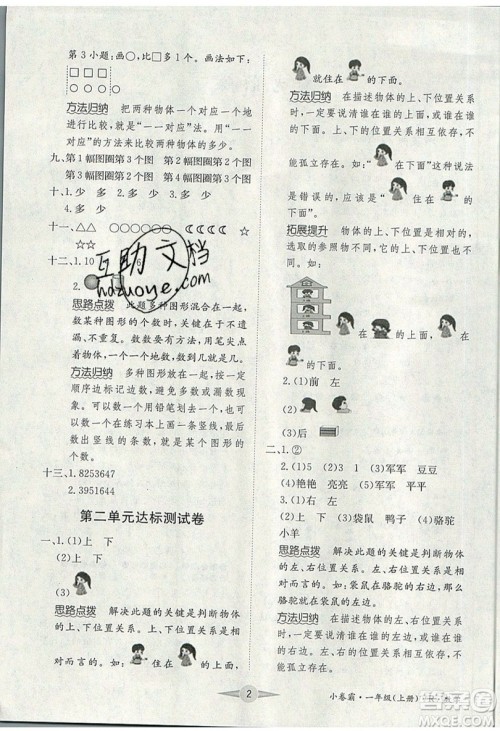 第3小题:画○,比□多1个。画法如下:
□□□□
○○○○○
方法归纳 把两种物体一个对应一个地
进行比较,就是“一一对应”法。用“一
一对应”的方法来比较两种物体的多少。
九、第1幅图圈第3个图 第2幅图圈第2个图
第3幅图圈第2个图 第4幅图圈第3个图
十、1.少 多 2.少 多 3.多 少
4.多 少
十一、△△ ○○○○○○
☆
十二、1.10
2.
思路点拨 此题多种图形混合在一起,
数某种图形的个数时,关键在于不遗
漏、不重复。数数要有顺序,一边数一边
点着物体,一个地方一个地方地数。
方法归纳 多种图形放在一起,按一
定顺序边标记边数,避免多数或漏数现
象。可以一类一类地分开数,数一类标
一类。数的时候用铅笔划去一个,同时
在练习本上打一条竖线,数到最后,数出
竖线的条数,就是某个图形的个数。
十三、1.8253647
2.3951644
第二单元达标测试卷
一、1.(1)上 下
(2)上 下
(3)
思路点拨 解决此题的关键是判断物体
的上、下位置关系。
就住在 的上面,
就住在 的下面。
方法归纳 在描述物体的上、下位置关系
时,一定要说清谁在谁的上面,谁在谁的
下面。上、下位置关系相互依存,不
能孤立存在。“ 在下面”这种说法
是错误的,应该是“ 住在 的
下面”。
拓展提升 物体的上、下位置是相对的,
选取的参照物不同,得出的结论也不一
样。如:
在 的上面,
在 的下面。
2.(1)前 左
(2)
(3)后
二、1.左
2.(1)5 (2)3 1 (3)军军 豆豆
(4)艳艳 亮亮 (5)亮亮 军军
3.(1)右 左
(2)上 下 (3)袋鼠 鸭子 (4)骆驼
小羊
思路点拨 解决此题的关键是判断物体
的左、右位置关系。左、右位置关系是
相互依存的。如:袋鼠在骆驼的右边,那么
骆驼就在袋鼠的左边。
方法归纳 在描述物体的左、右位置关系
时,要说清楚谁在谁的左边,谁在谁的右
边。左、右位置关系相互依存,不能孤立
存在。
2
小卷霸·一年级(上册)
互助文档
hdzuoye.com
答案圈